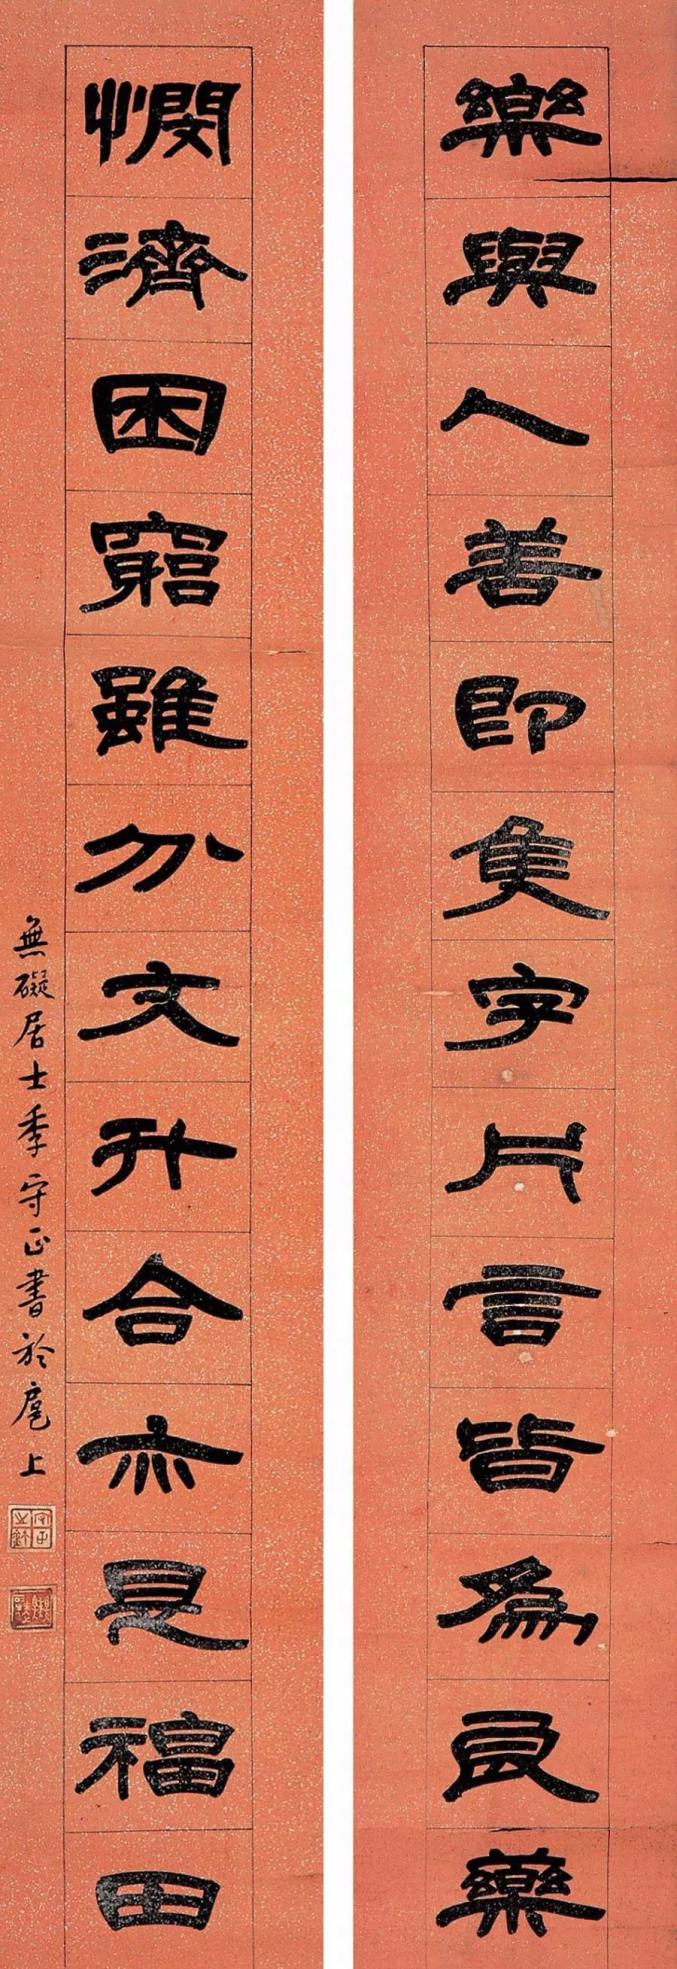 樂與人善即隻字片言皆為良藥
憫濟困窮雖分文升合亦是福田
無礙居士季守正書於扈上